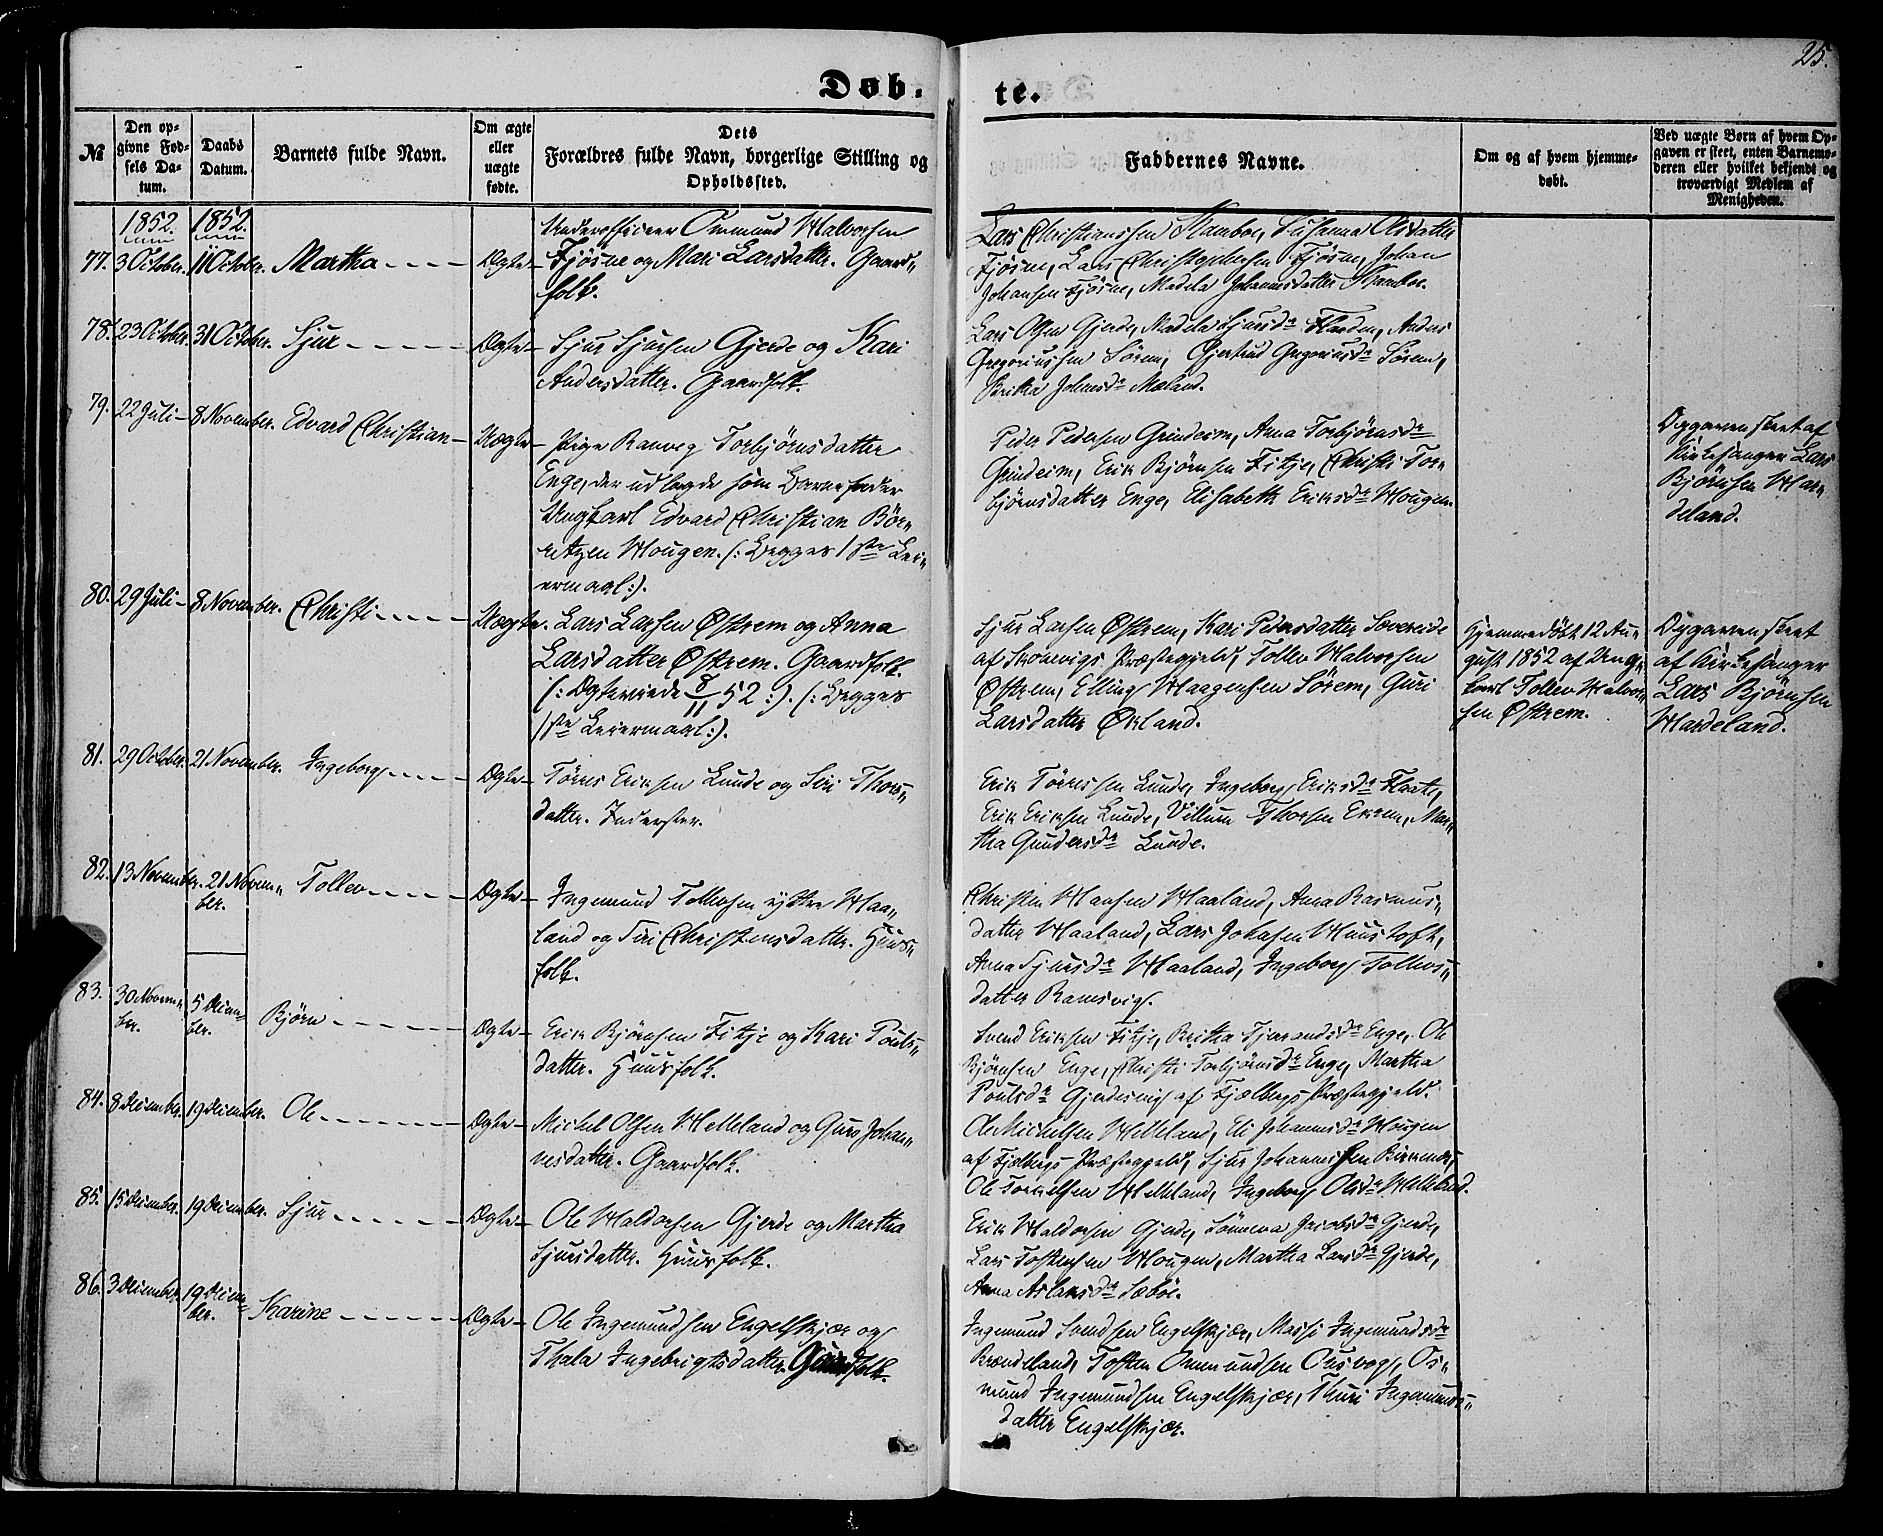 25.
Døb. te.
№
Den op-
givne Fød-
sels Da-
tum.
Daabs
Datum.
Barnets fulde Navn.
Om ægte
eller
uægte
fødte.
Dets
Forældres fulde Navn, borgerlige Stilling og
Opholdssted.
Faddernes Navne.
Om og af hvem hjemme-
døbt.
Ved uægte Børn af hvem Op-
gaven er skeet, enten Barnemo-
deren eller hvilket bekjendt og
troværdigt Medlem af
Menigheden.
1852. 1852.
77. 3 October. 11 October. Martha Ægte
Underofficeer Ommund Halvorsen
Fjøsne og Mari Larsdatter. Gaard-
folk.
Lars Christianssen Skamboe, Susanna Olsdatter
Fjøsne, Lars Christophersen Fjøsne, Johan
Johansen Fjøsne, Madela Johannisdatter Skamboe.
78. 23 October. 31 October. Sjur Ægte
Sjur Sjursen Gjerde og Kari
Andersdatter. Gaardfolk.
Lars Olsen Gjerde, Madela Sjursdr Flaaden, Anders
Gregoriussen Sørem, Gjertrud Gregoriusdr Sørem,
Brita Johnsdr Mæland.
79. 22 Juli 8 November. Edvard Christian Uægte
Pige Ranveg Torbjørnsdatter
Enge, der udlagde som Barnefader
Ungkarl Edvard Christian Bør-
retzen Hougen. (: Begges 1ste Lei-
ermaal:).
Peder Pedersen Grindeim, Anna Torbjørnsdr
Grindeim, Erik Bjørnsen Fitje, Christi Tor-
bjørnsdatter Enge, Elisabeth Eriksdr Hougen.
Opgaven skeet af
Kirkesanger Lars
Bjørnsen Har-
deland.
80. 29 Juli 8 November. Christi Uægte.
Lars Larsen Østrem og Anna
Larsdatter Østrem. Gaardfolk.
(: Ægteviede 8/11 52 :). (: Begges
1ste Leiermaal:).
Sjur Larsen Østrem, Kari Pedersdatter Sævereide
af Skonevigs Præstegjeld, Tollev Halvorsen
Østrem, Elling Haagensen Sørem, Guri
Larsdatter Økland.
Hjemmedøbt 12 Au-
gust 1852 af Ung-
karl Tollev Halvor-
sen Østrem.
Opgaven skeet
af Kirkesanger
Lars Bjørnsen
Hardeland.
81. 29 October. 21 November. Ingeborg Ægte
Tørres Eriksen Lunde og Siri Thors-
datter. Inderster.
Erik Tørressen Lunde, Ingeborg Eriksdr Flaate,
Erik Eriksen Lunde, Villum Thorsen Ekrem, Mar-
tha Gundersdr Lunde.
82. 13 November. 21 Novem-
ber. Tollev Ægte
Ingemund Tollevsen yttre Haa-
land og Siri Christensdatter. Huus-
folk.
Christen Hansen Haaland, Anna Rasmus-
datter Haaland, Lars Johnsen Huustoft,
Anna Sjursdr Haaland, Ingeborg Tollevs-
datter Ramsvig.
83. 30 Novem-
ber. 5 Decem-
ber. Bjørn Ægte
Erik Bjørnsen Fitje og Kari Pouls-
datter. Huusfolk.
Svend Eriksen Fitje, Britha Tjerandsdr Enge, Ole
Bjørnsen Enge, Christi Torbjørnsdr Enge, Martha
Poulsdr Gjerdesvig af Fjelbergs Præstegjeld.
84. 8 December. 19 December. Ole Ægte
Michel Olsen Helleland og Guro Johan-
nesdatter. Gaardfolk.
Ole Michelsen Helleland, Eli Johannisdr Hougen
af Fjelbergs Præstegjeld, Sjur Johannessen Birkenæs,
Ole Torkelsen Helleland, Ingeborg Olsdr Helleland.
85. 15 December. 19 December. Sjur Ægte
Ole Haldorsen Gjerde og Martha
Sjursdatter. Huusfolk.
Erik Haldorsen Gjerde, Sønneva Jacobsdr Gjerde,
Lars Tostensen Hougen, Martha Larsdr Gjerde,
Anna Aslaksdr Sæbøe.
86. 3 December. 19 Decem-
ber. Karine Ægte
Ole Ingemundsen Engelskjær og
Thala Ingebrigtsdatter. Gaardfolk.
Ingemund Svendsen Engelskjær, Massi Ingemundsdr
Brændeland, Tosten Ommundsen Ousvog, Os-
mund Ingemundsen Engelskjær, Thuri Ingemunds-
datter Engelskjær.